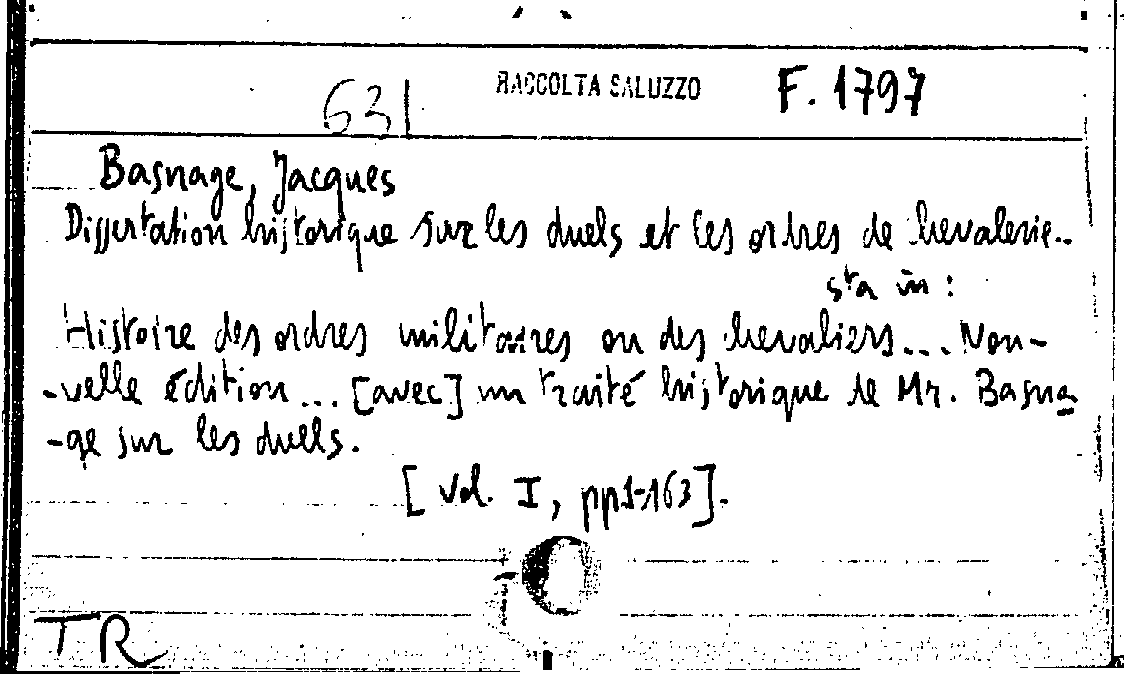 631 RACCOLTA SALUZZO F. 1797
Basnage, Jacques
Dissertation historique sur les duels et les ordres de chevalerie..
sta in:
Histoire des ordres militaires ou des chevaliers... Nou-
-velle édition... [avec] un traité historique de Mr. Basna
-ge sur les duells.
[vol. I, pp1-163].
TR